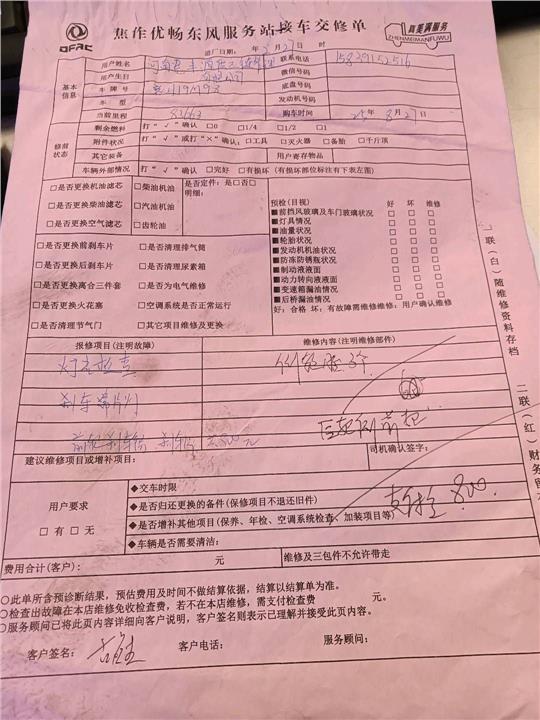 DFAC
焦作优畅东风服务站接车交修单
真美满服务
ZHENMEIMANFUWU
进厂日期: 年 8月27日 时
基本信息
用户姓名
联系电话
用户生日
微信号码
车牌号
底盘号码
车型
发动机号码
当前里程
购车时间 25年8月27日
修前状态
剩余燃料 打“√”确认 □0 □1/4 □1/2 □1
附件状况 打“√”或打“×”确认: □工具 □灭火器 □备胎 □千斤顶
其它装备 用户寄存物品
车辆外部情况 打“√”确认 □完好 □有损坏 (有损坏部位标注有下表左图)
□是否更换机油滤芯 □柴油机油 是否定件: 是□否□
□是否更换柴油滤芯 □汽油机油 明细:
□是否更换空气滤芯 □齿轮油
□是否更换前刹车片 □是否清理排气筒
□是否更换后刹车片 □是否清理尿素箱
□是否更换离合三件套 □是否为电气维修
□是否更换火花塞 □空调系统是否正常运行
□是否清理节气门 □其它项目维修及更换
预检(目视) 好 坏 维修
■前挡风玻璃及车门玻璃状况 □ □ □
■灯具情况 □ □ □
■油量状况 □ □ □
■轮胎状况 □ □ □
■发动机机油状况 □ □ □
■防冻防锈瓶状况 □ □ □
■制动液液面 □ □ □
■动力转向液液面 □ □ □
■变速箱漏油情况 □ □ □
■后桥漏油情况 □ □ □
好: 合格 坏: 有故障需维修维修: 用户确认维修
报修项目(注明故障)
维修内容(注明维修部件)
灯光检查
刹车常片灯
建议维修项目或增补项目:
司机确认签字:
用户要求
□有 □无
◆交车时限
◆是否归还更换的备件(保修项目不退还旧件)
◆是否增补其他项目(保养、年检、空调系统检查、加装项目等)
◆车辆是否需要清洁:
800.
费用合计(客户): 元
维修及三包件不允许带走
○此单所含预诊断结果,预估费用及时间不做结算依据,结算以结算单为准。
○检查出故障在本店维修免收检查费,若不在本店维修,需支付检查费 元。
○服务顾问已将此页内容详细向客户说明,客户签名则表示已理解并接受此页内容。
客户签名:
客户电话:
服务顾问:
一联(白)随维修资料存档
二联(红)财务